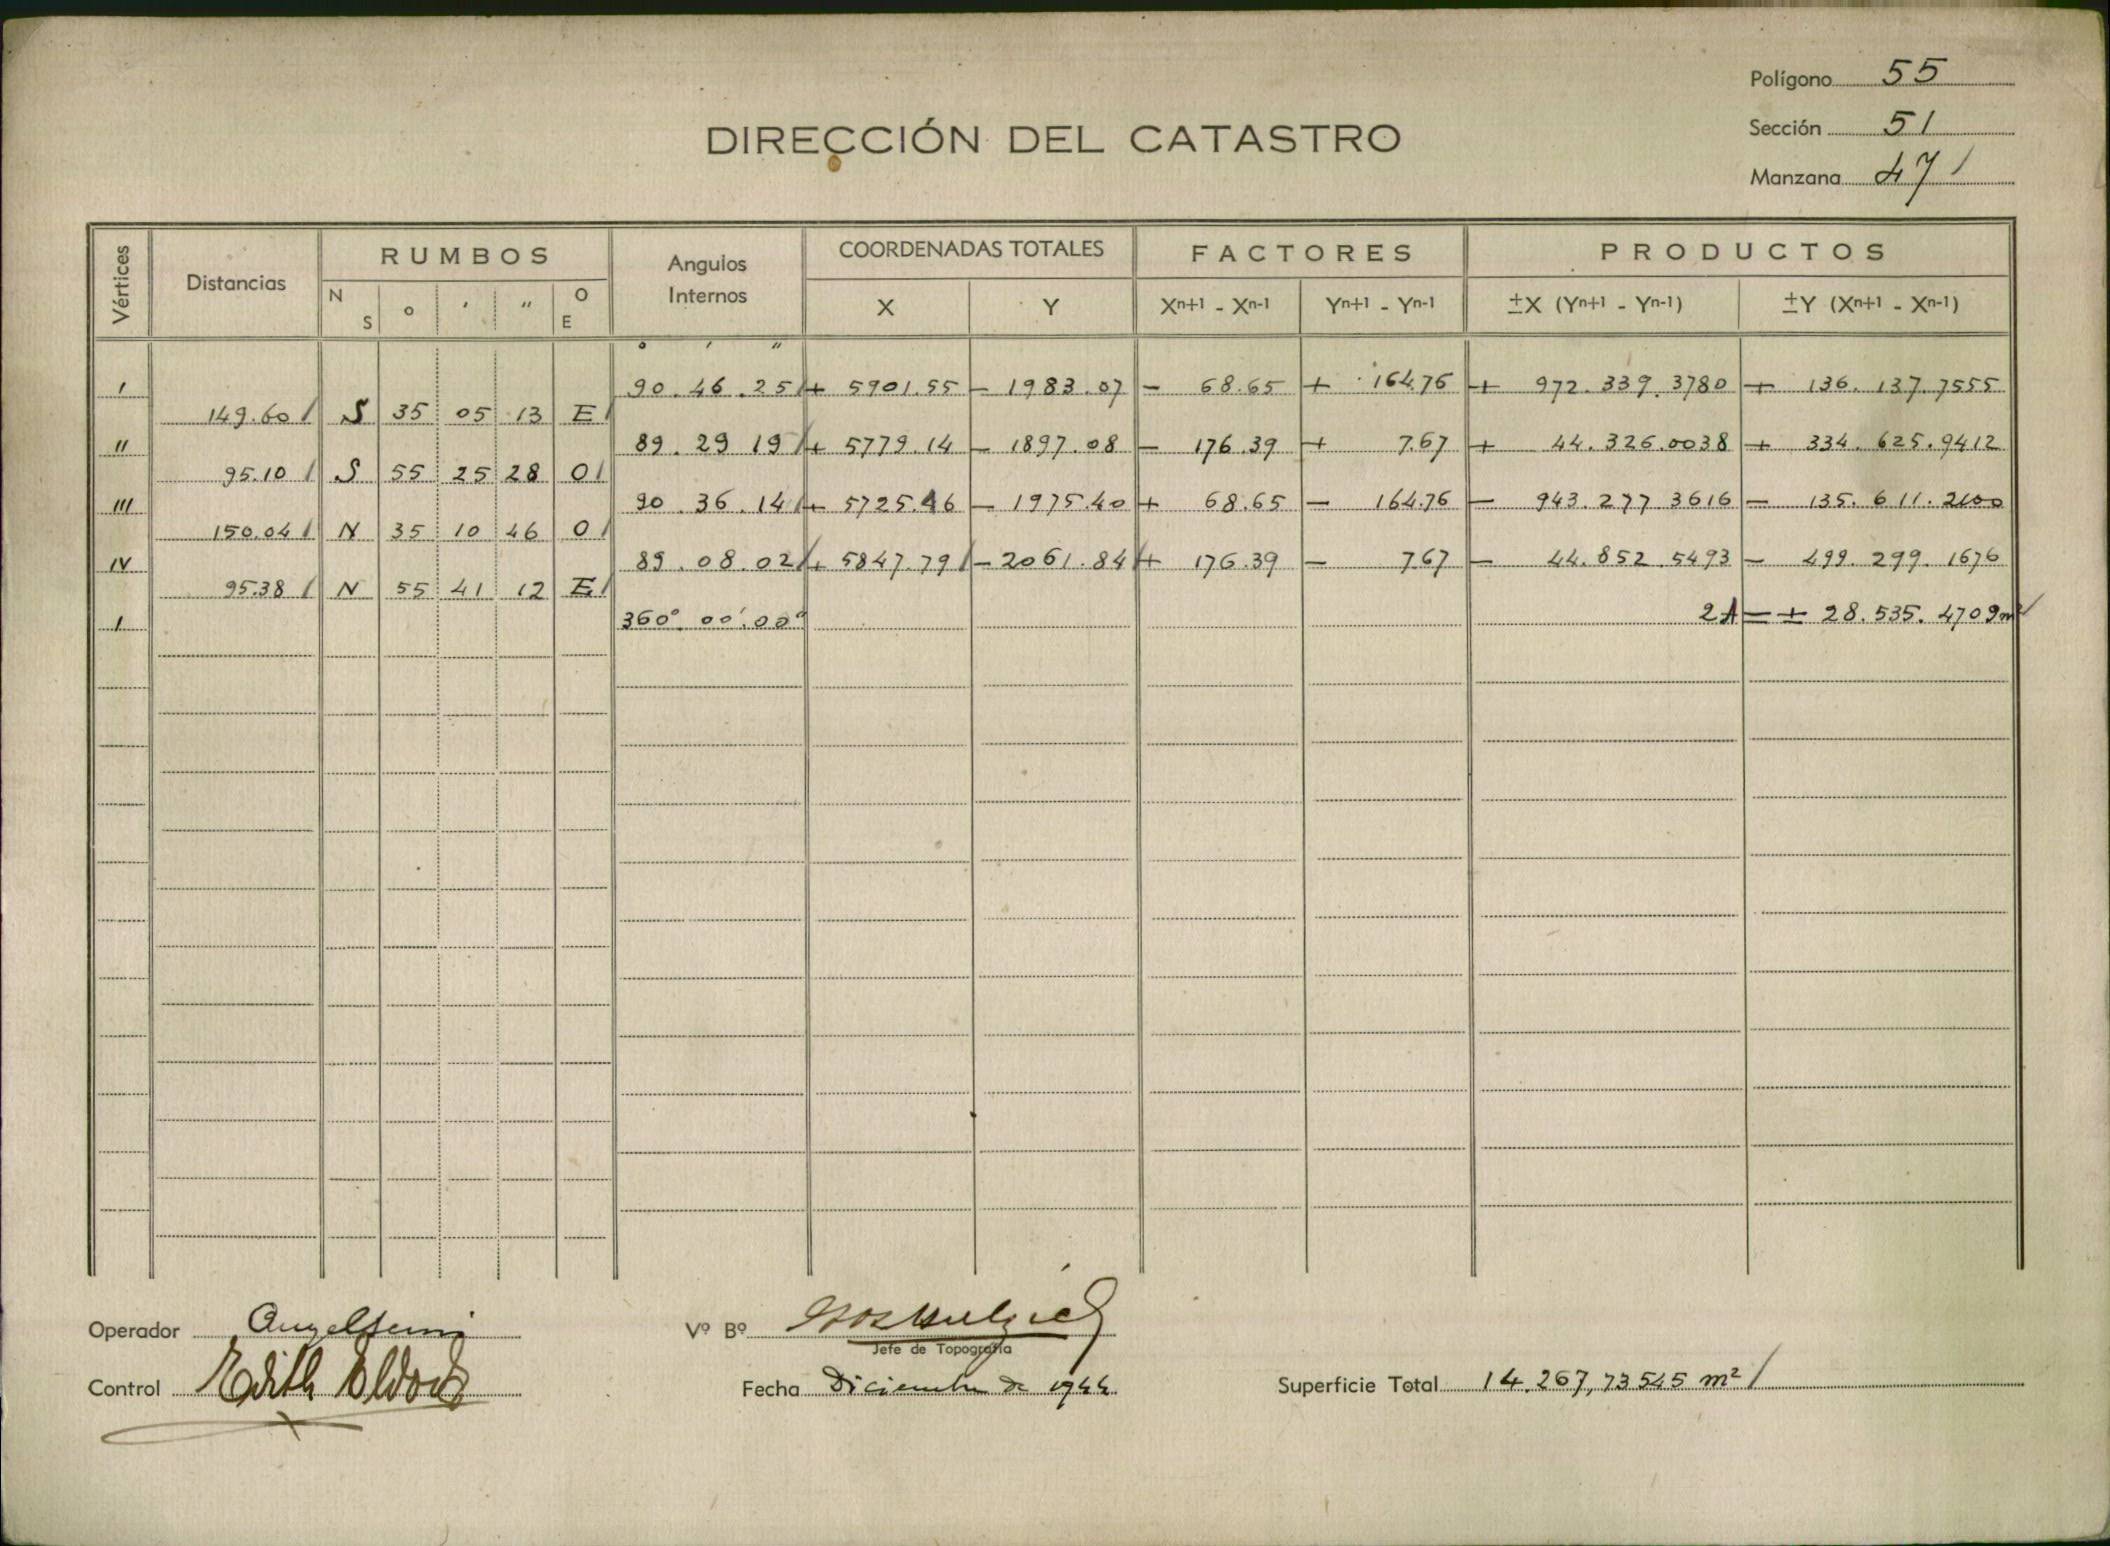 Polígono 55
Sección 51
Manzana 47
DIRECCIÓN DEL CATASTRO
Vértices Distancias RUMBOS N S ° ' " O E Angulos Internos COORDENADAS TOTALES X Y FACTORES Xn+1 - Xn-1 Yn+1 - Yn-1 PRODUCTOS ±X (Yn+1 - Yn-1) ±Y (Xn+1 - Xn-1)
° ' "
I 90.46.25 + 5901.55 - 1983.07 - 68.65 + 164.76 + 972.339.3780 + 136.137.7555
149.60 S 35 05 13 E
II 89.29 19 + 5779.14 - 1897.08 - 176.39 + 7.67 + 44.326.0038 + 334.625.9412
95.10 S 55 25 28 O
III 90.36.14 + 5725.46 - 1975.40 + 68.65 - 164.76 - 943.277.3616 - 135.611.2100
150.04 N 35 10 46 O
IV 89.08.02 + 5847.79 - 2061.84 + 176.39 - 7.67 - 44.852.5493 - 499.299.1676
95.38 N 55 41 12 E
I 360°.00'.00" 2A = + 28.535.4709 m²
Operador
Vº Bº
Jefe de Topografía
Control Edith
Fecha Diciembre de 1944
Superficie Total 14.267,73545 m²